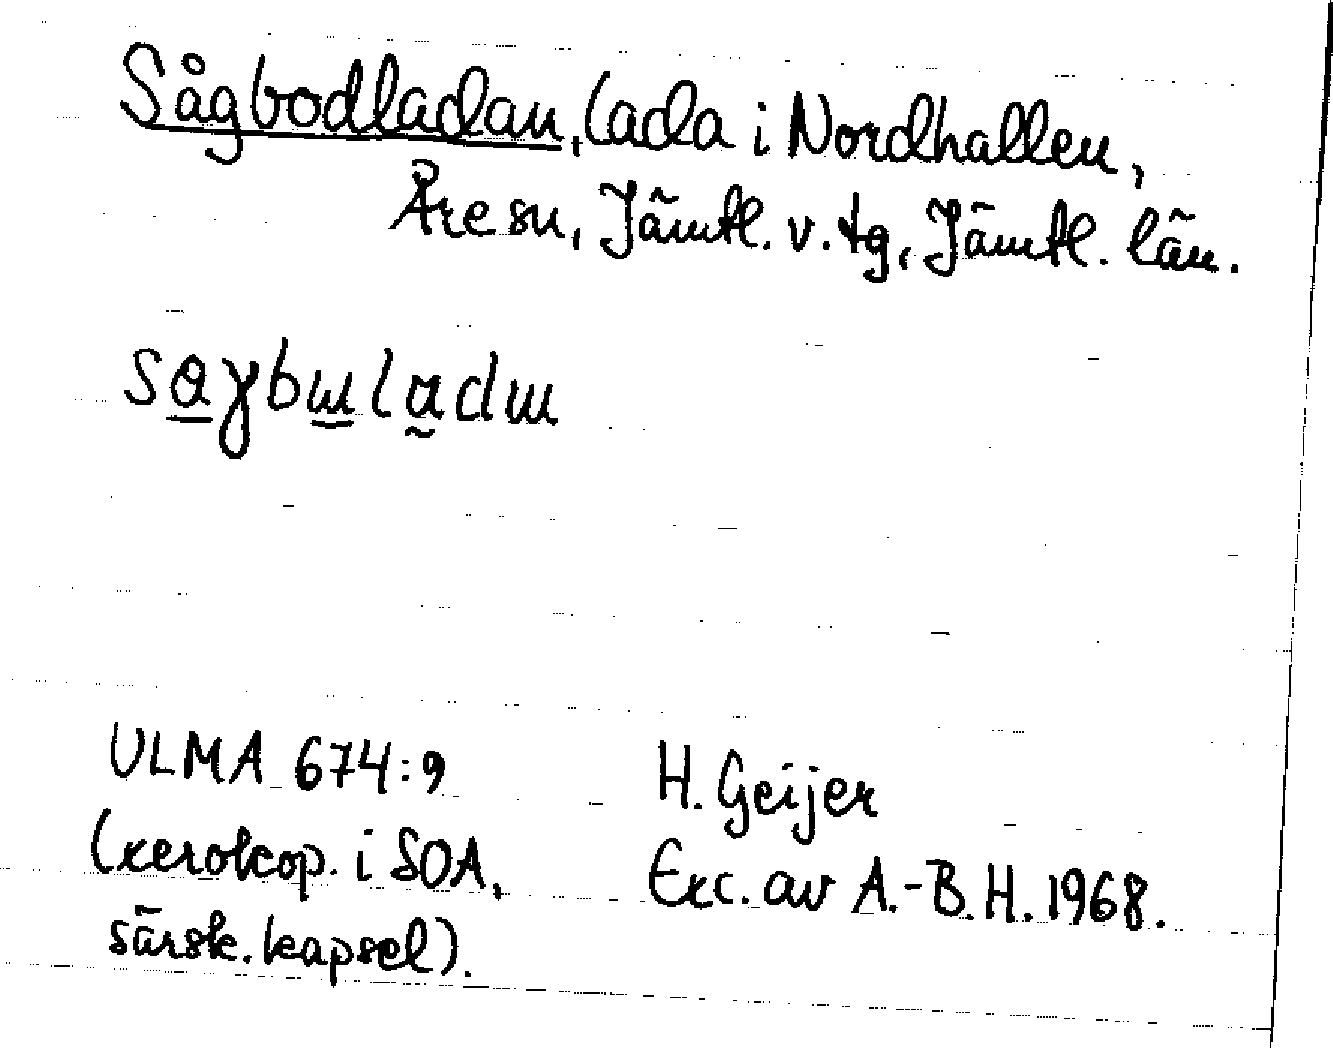 Sågbodladan, lada i Nordhallen,
Åre sn, Jämtl. v. tg, Jämtl. län.
saɣbɯladɯ
ULMA 674:9
H. Geijer
(xerokop. i SOA,
Exc. av A.-B. H. 1968.
särsk. kapsel).